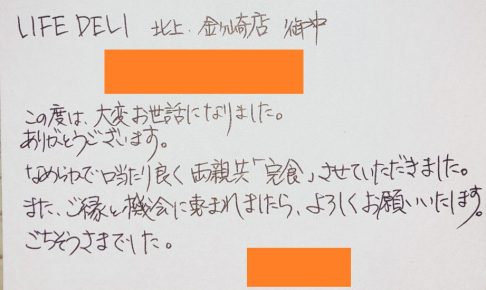 LIFE DELI 北上 金ヶ崎店 御中
この度は、大変お世話になりました。
ありがとうございます。
なめらかで口当たり良く両親共「完食」させていただきました。
また、ご縁と機会に恵まれましたら、よろしくお願いいたします。
ごちそうさまでした。